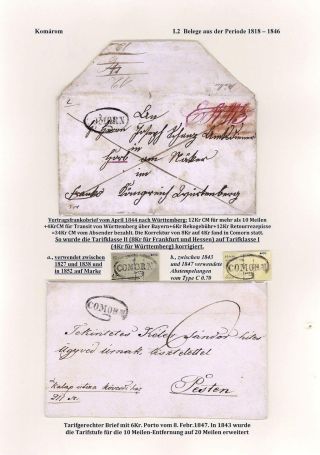 Komárom
I.2 Belege aus der Periode 1818 – 1846
COMORN
Horb am Näker
franko Königreich Würtemberg
Vertragsfrankobrief vom April 1844 nach Württemberg: 12Kr CM für mehr als 10 Meilen
+4KrCM für Transit von Württemberg über Bayern+6Kr Rekogebühr+12Kr Retourrezepisse
=34Kr CM vom Absender bezahlt. Die Korrektur von 8Kr auf 4Kr fand in Comorn statt.
So wurde die Tarifklasse II (8Kr für Frankfurt und Hessen) auf Tarifklasse I
(4Kr für Württemberg) korrigiert.
a., verwendet zwischen
1827 und 1838 und
in 1852 auf Marke
COMORN
b., zwischen 1843
und 1847 verwendete
Abstempelungen
vom Type C 0.70
COMORN
COMORN
Tekintetes Sándor
Ügyvéd Úrnak tisztelettel
Pesten
Kalap utcza
Tarifgerechter Brief mit 6Kr. Porto vom 8. Febr.1847. In 1843 wurde
die Tarifstufe für die 10 Meilen-Entfernung auf 20 Meilen erweitert